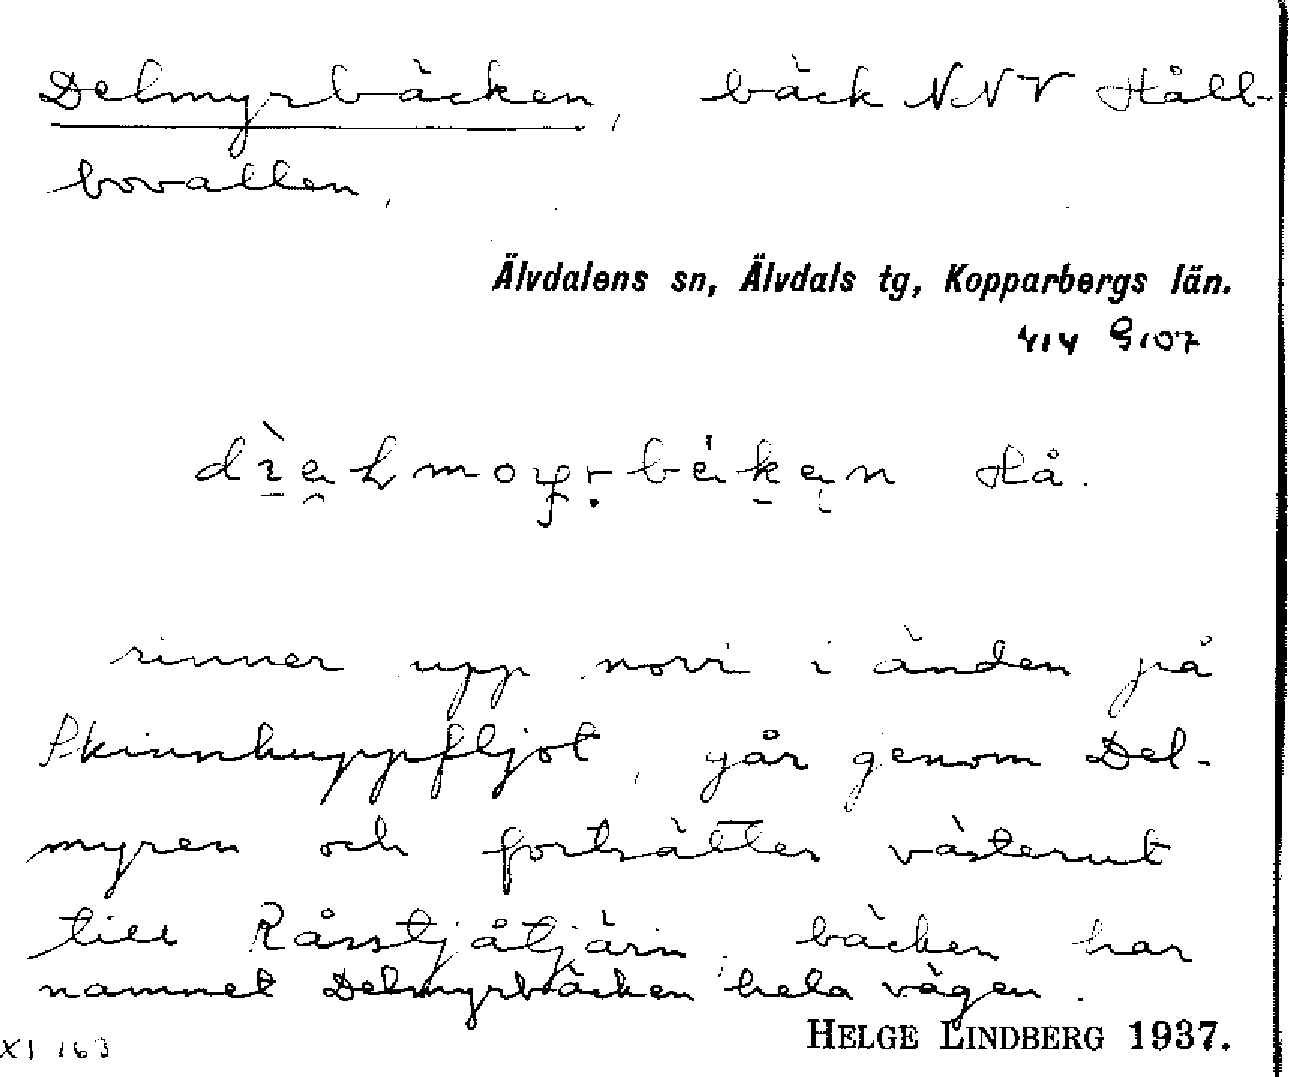 Delmyrbäcken, bäck NNV Håll-
bovallen,
Älvdalens sn, Älvdals tg, Kopparbergs län.
414 G107
Hå.
rinner upp norr i änden på
Skinnhuppfljot, går genom Del-
myren och fortsätter västerut
till Råsstjåtjärn, bäcken har
namnet Delmyrbäcken hela vägen.
HELGE LINDBERG 1937.
XI 163